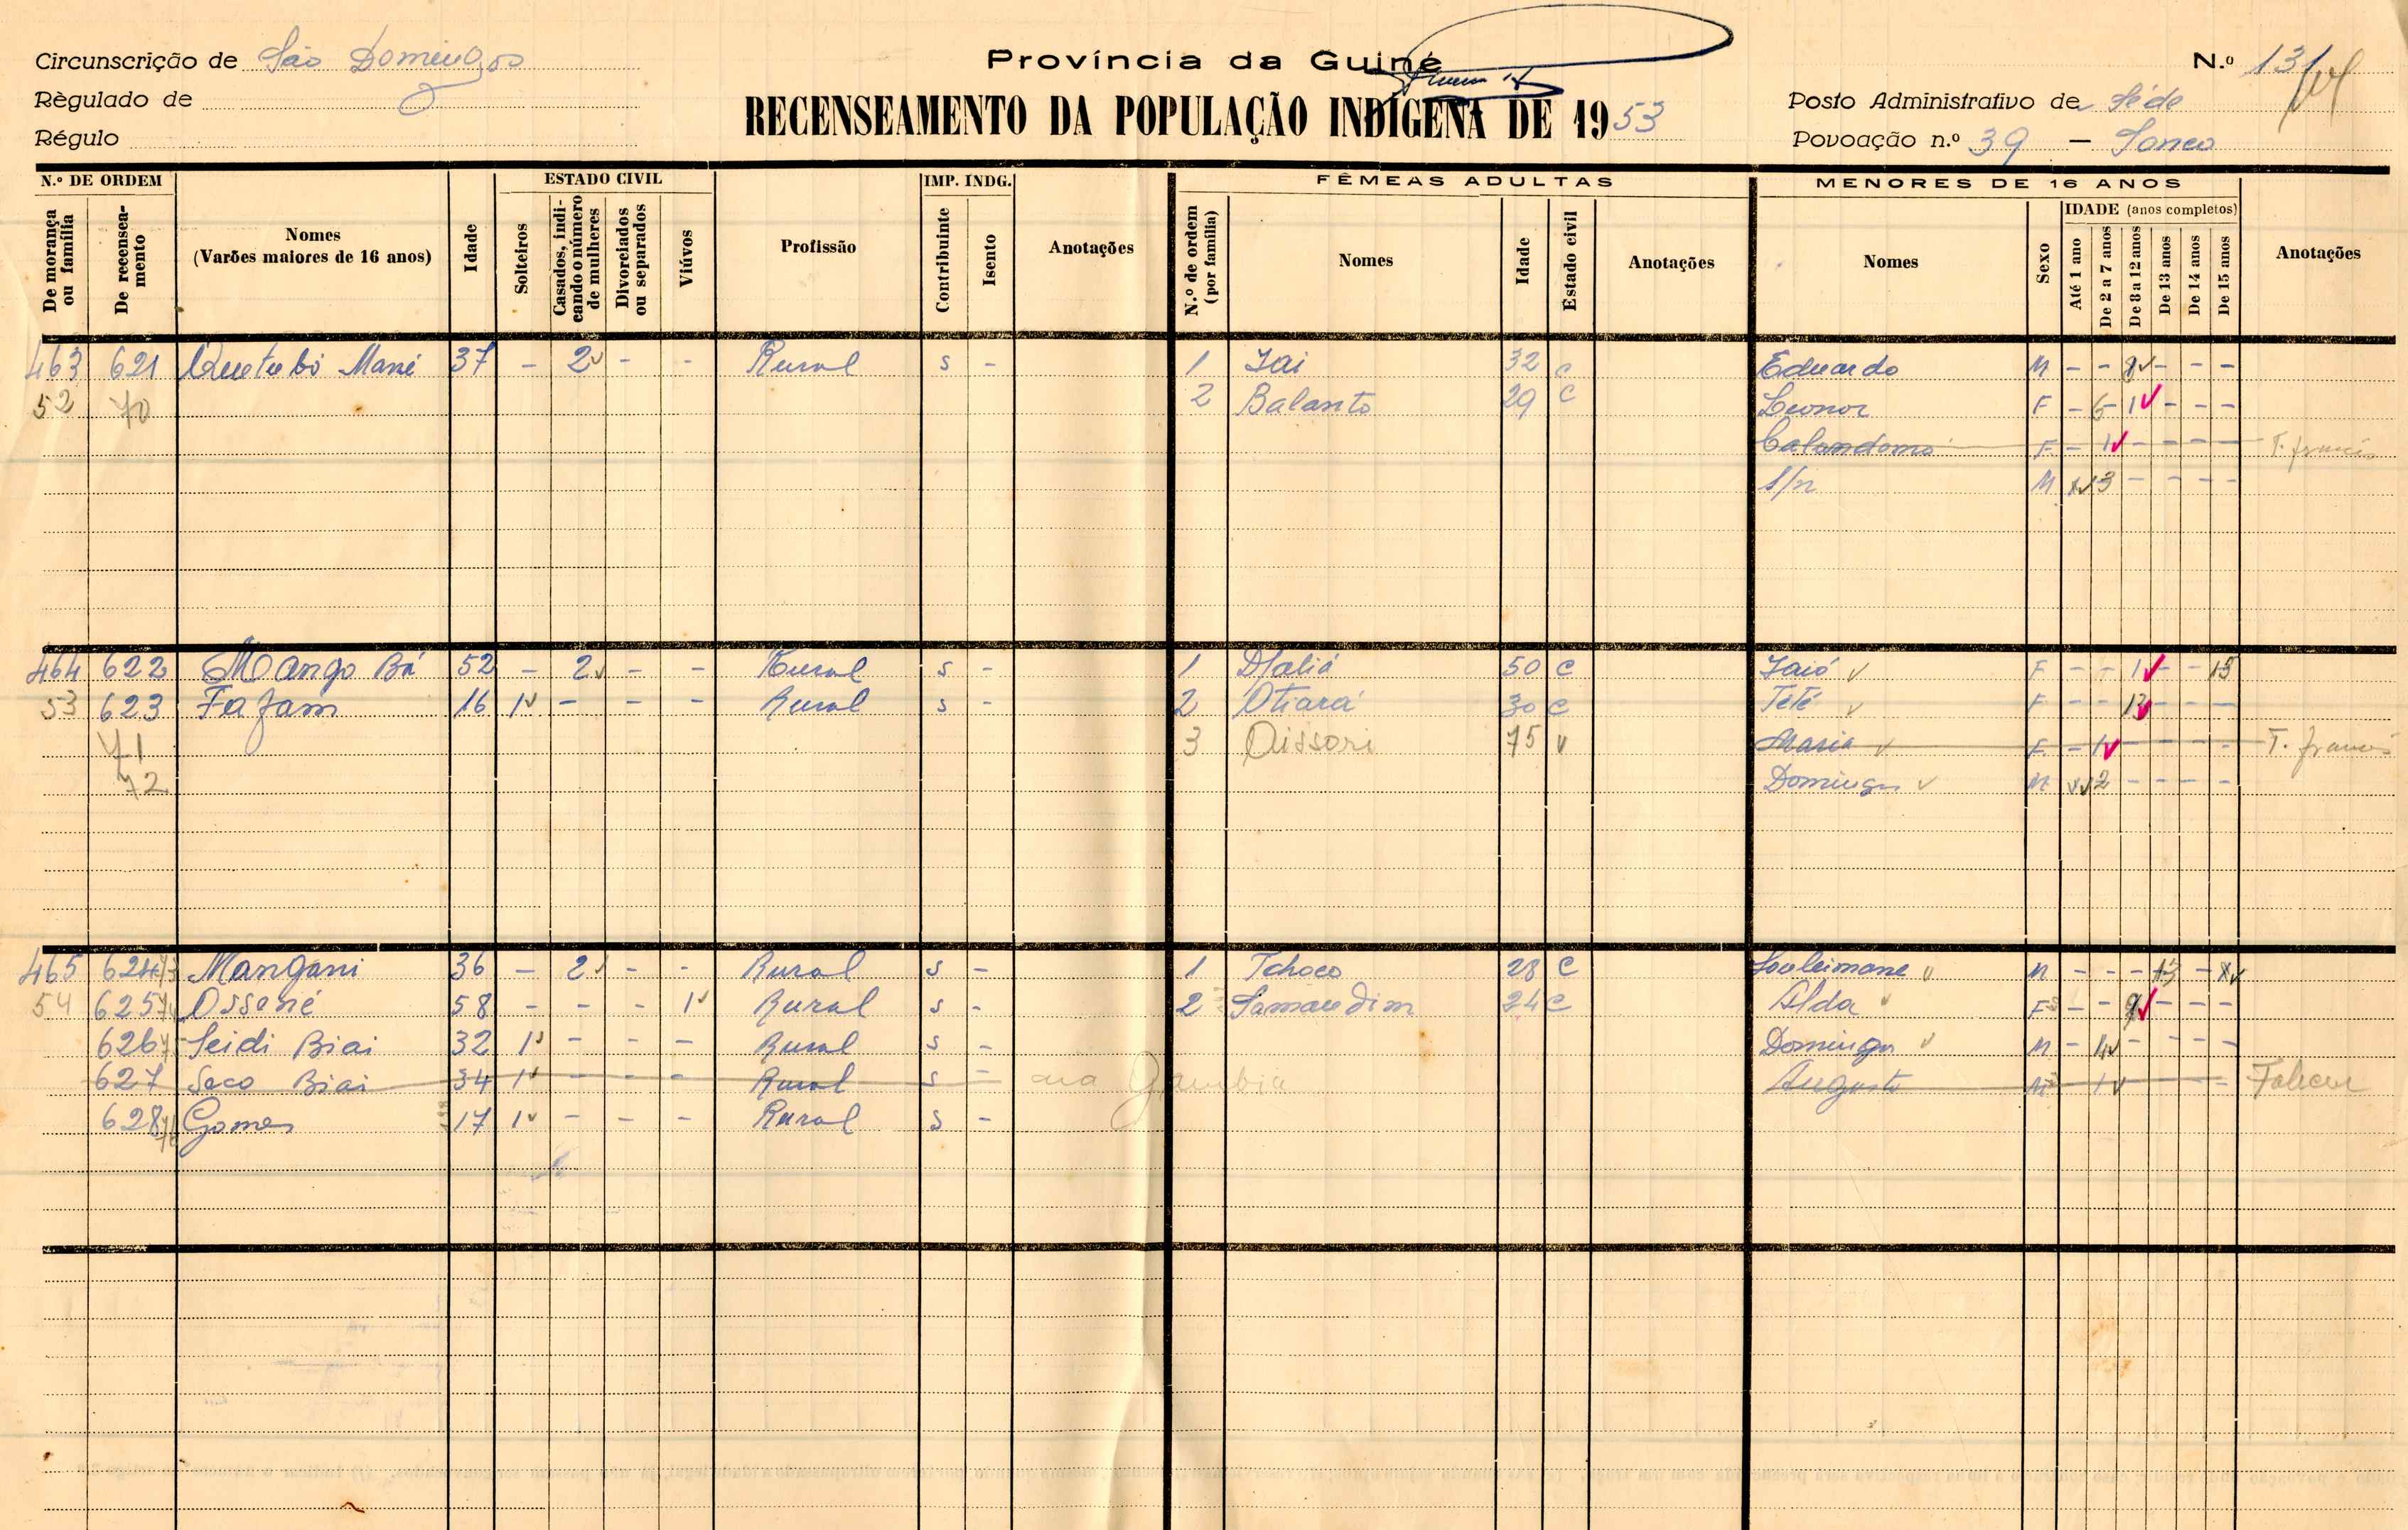 Circunscrição de São Domingos
Província da Guiné
N.º 131
Règulado de
RECENSEAMENTO DA POPULAÇÃO INDÍGENA DE 1953
Posto Administrativo de Séde
Régulo
Povoação n.º 39 —
N.º DE ORDEM
De morança ou família
De recenseamento
Nomes (Varões maiores de 16 anos)
Idade
ESTADO CIVIL
Solteiros
Casados, indicando o número de mulheres
Divorciados ou separados
Viúvos
Profissão
IMP. INDG.
Contribuinte
Isento
Anotações
FÊMEAS ADULTAS
N.º de ordem (por família)
Nomes
Idade
Estado civil
Anotações
MENORES DE 16 ANOS
Nomes
Sexo
IDADE (anos completos)
Até 1 ano
De 2 a 7 anos
De 8 a 12 anos
De 13 anos
De 14 anos
De 15 anos
Anotações
463 621 Mané 37 - 2 - - Rural s - 1 Jai 32 c Eduardo M - - - - -
52 70 2 Balanto 29 c Leonor F - 6 1 - - -
Calandomo F - 1 - - - - T. francês
S/n M 3 - - - -
464 622 Mango Bá 52 - 2 - - Rural s - 1 Dfaliá 50 c Jaió F - - 1 - - 15
53 623 Fafam 16 1 - - - Rural s - 2 Otiará 30 c Tété F - - 13 - - -
71 3 Aissori 75 v Maria F - 1 - - - - T. francês
72 Domingos M 2 - - - -
465 624 Mangani 36 - 2 - - Rural s - 1 Tchoco 28 c Souleimane M - - - 13 -
54 625 Ossené 58 - - - 1 Rural s - 2 Samandim 24 c Alda F - - - - -
626 Seidi Biai 32 1 - - - Rural s - Domingos M - 4 - - - -
627 Saco Biai 34 1 - - - Rural s - na Gambia Augusto M 1 - - - Faleceu
628 Gomes 17 1 - - - Rural s -